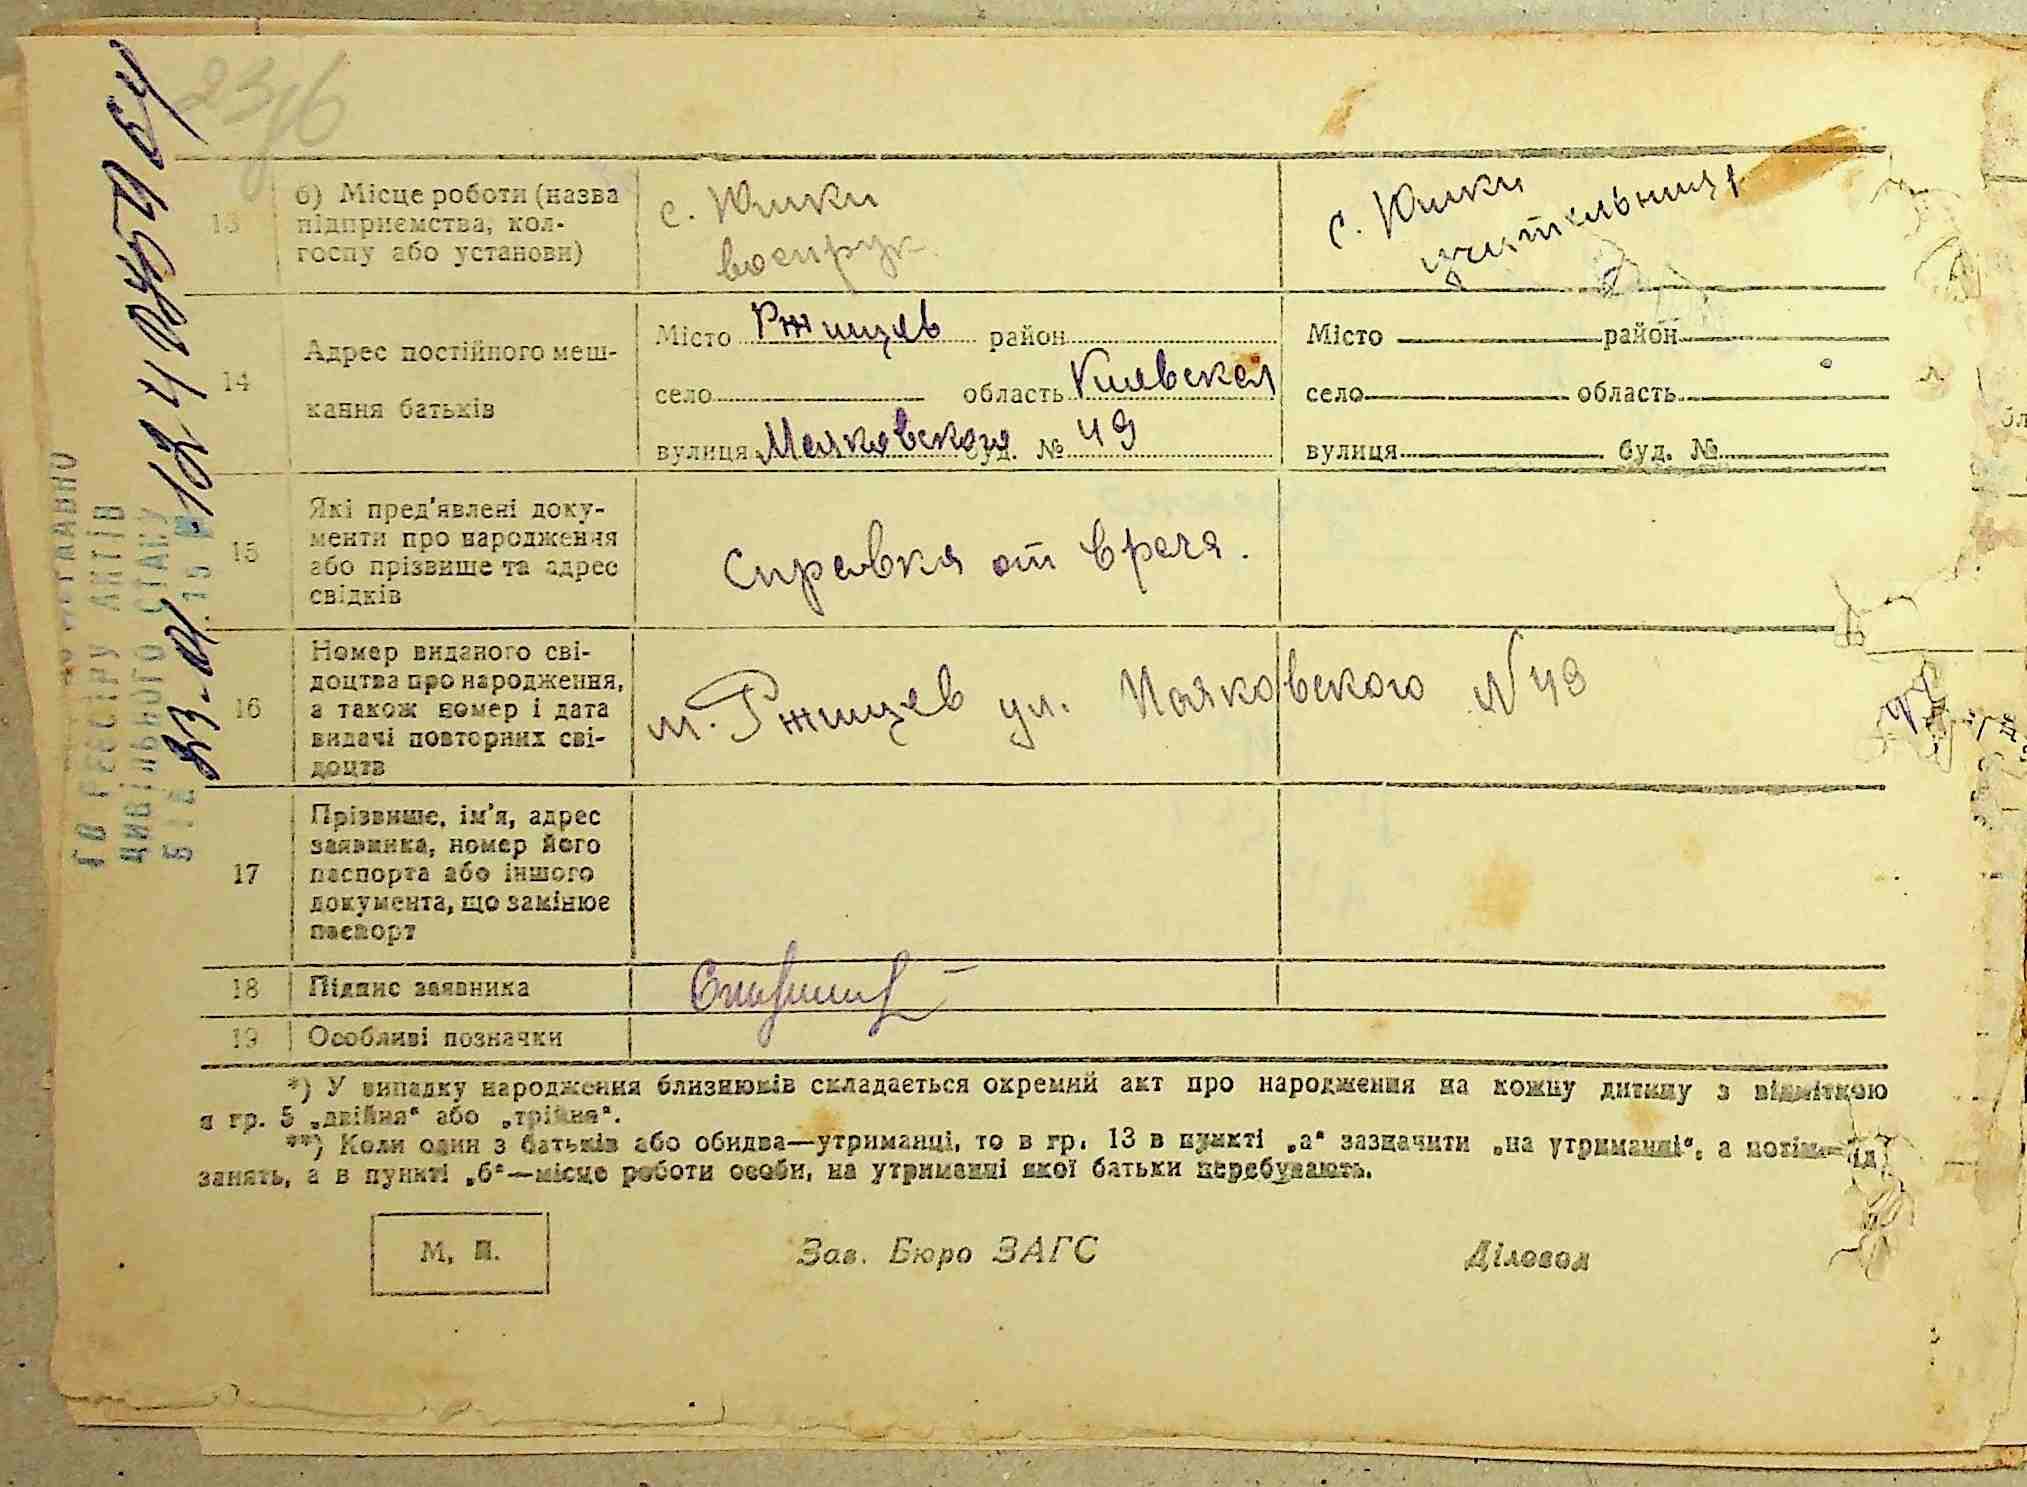 23/6
13
б) Місце роботи (назва
підприємства, кол-
госпу або установи)
с. Юшки
военрук
с. Юшки
учительница
14
Адрес постійного меш-
кання батьків
Місто Ржищев район
село область Киевская
вулиця Маяковского буд. № 49
Місто район
село область
вулиця буд. №
15
Які пред'явлені доку-
менти про народження
або прізвище та адрес
свідків
Справка от врача.
16
Номер виданого сві-
доцтва про народження,
а також номер і дата
видачі повторних сві-
доцтв
м. Ржищев ул. Маяковского № 49
17
Прізвище, ім'я, адрес
заявника, номер його
паспорта або іншого
документа, що замінює
паспорт
18
Підпис заявника
19
Особливі позначки
*) У випадку народження близнюків складається окремий акт про народження на кожну дитину з відміткою
в гр. 5 „двійня“ або „трійня“.
**) Коли один з батьків або обидва—утриманці, то в гр. 13 в пункті „а“ зазначити „на утриманні“, а
занять, а в пункті „б“—місце роботи особи, на утриманні якої батьки перебувають.
М. П.
Зав. Бюро ЗАГС
Діловод
ДО РЕЄСТРУ АКТІВ
ЦИВІЛЬНОГО СТАНУ